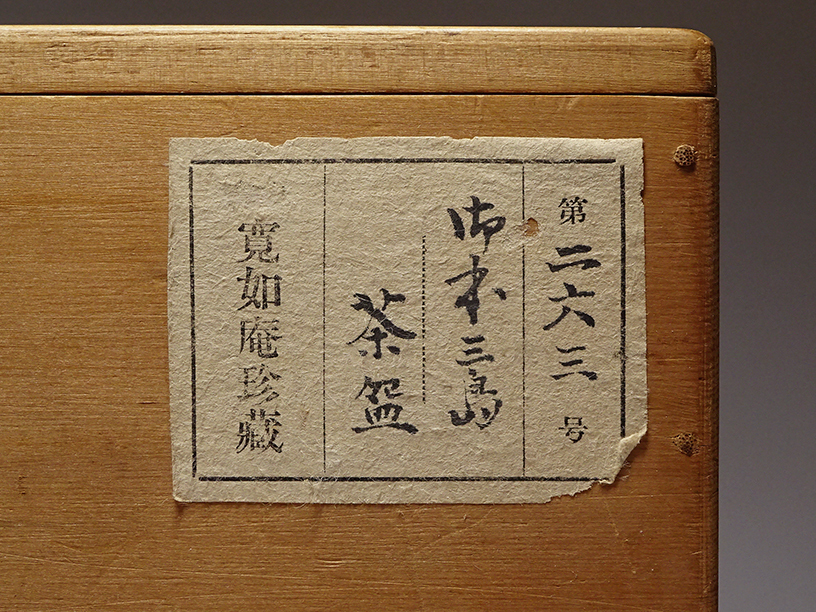 第二六三号
御本三島
茶盌
寛如庵珍藏